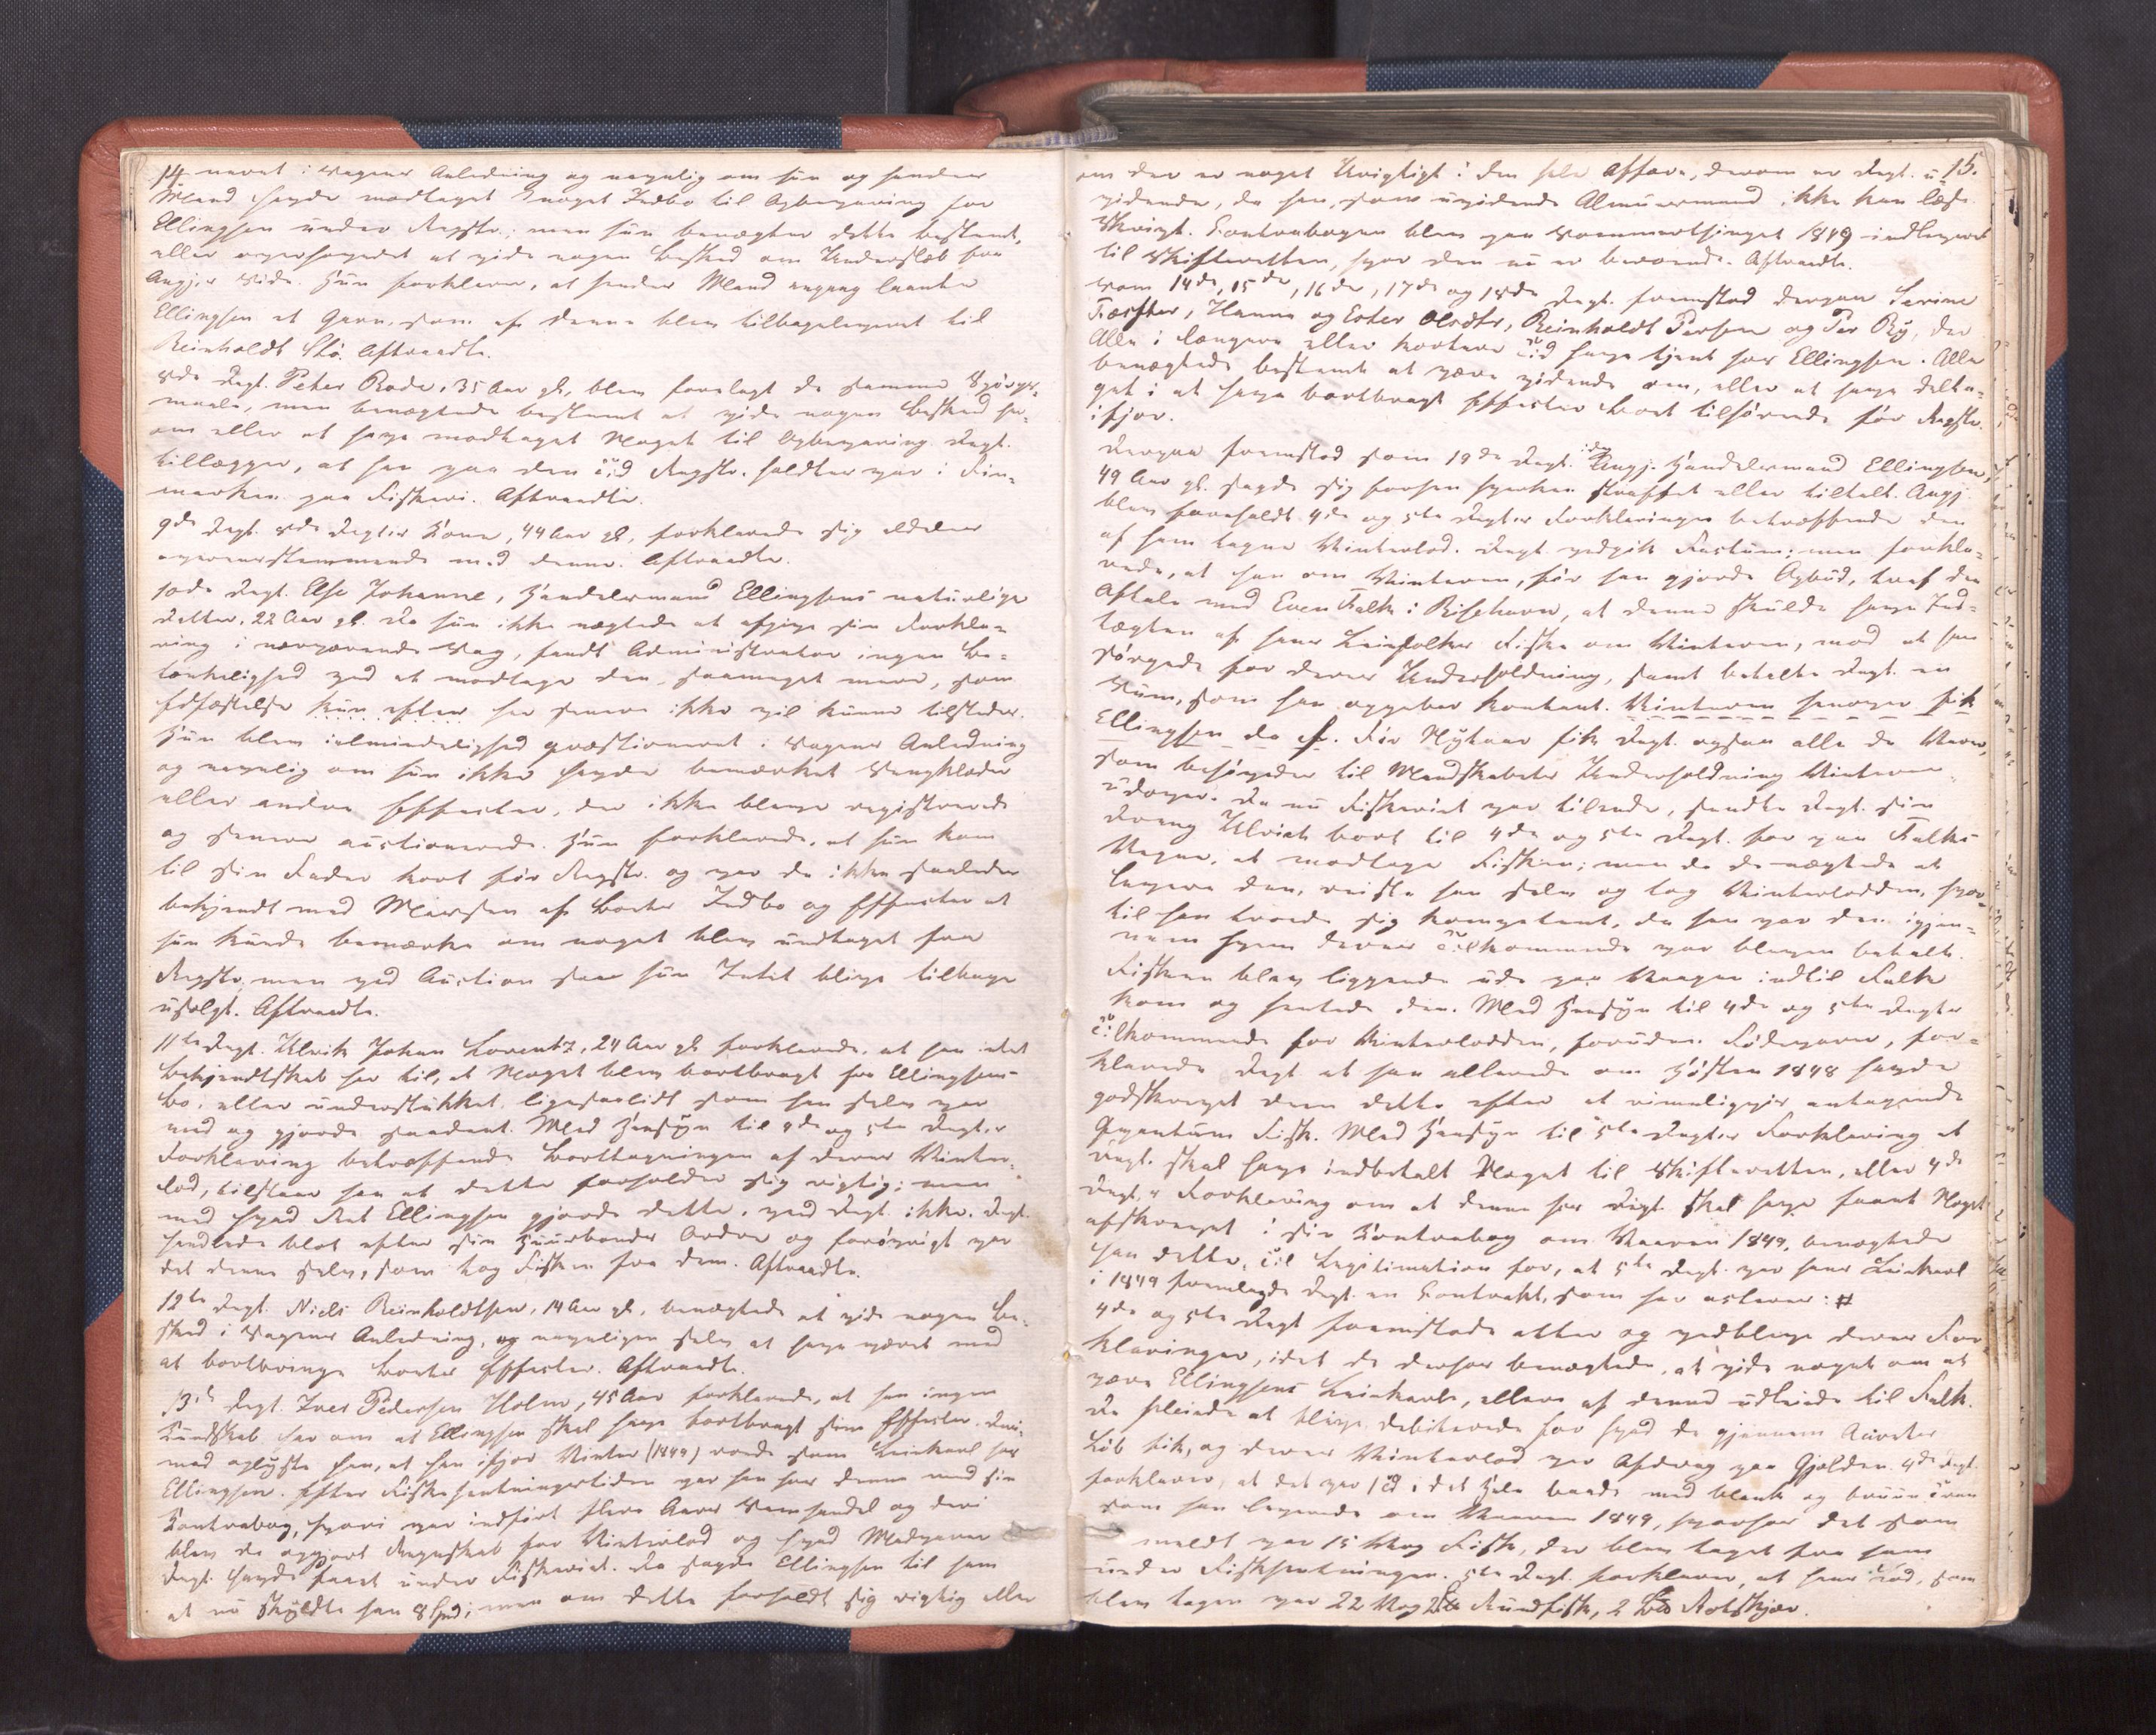 14
nævnt i Sagens Anledning og navnlig om hun og hendes
Mand havde modtaget noget Indbo til Opbevaring for
Ellingsen under Regstr.; men hun benægter dette bestemt,
eller overhovedet at vide nogen Besked om Underslæb fra
Angj.s Side. Hun forklarer, at hendes Mand engang laante
Ellingsen et Garn, som af denne blev tilbageleveret til
Reinholdt Stö. Aftraadte.
8de Dept. Peter Rode, 35 Aar gl., blev forelagt de samme Spörgs-
maale, men benægtede bestemt at vide nogen Besked her-
om eller at have modtaget Noget til Opbevaring. Dept.
tillægger, at han paa den Tid Regstr. holdtes var i Fin-
marken paa Fiskeri. Aftraadte.
9de Dept. 8de Deptes Kone, 44 Aar gl., forklarede sig aldeles
overeensstemmende med denne. Aftraadte.
10de Dept. Else Johanne, Handelsmand Ellingsens naturlige
Datter, 22 Aar gl. Da hun ikke nægtede at afgive sin Forkla-
ring i nærværende Sag, fandt Administrator ingen Be-
tænkelighed ved at modtage den, saameget mere, som
Edfæstelse kun efter her senere ikke vil kunne tilstedes.
Hun blev i almindelighed qvæstioneret i Sagens Anledning
og navnlig om hun ikke havde bemærket Sengklæder
eller andre Effecter, der ikke bleve registrerede
og senere auctionerede. Hun forklarede, at hun kom
til sin Fader kort för Regstr. og var da ikke saaledes
bekjendt med Massen af Boets Indbo og Effecter at
hun kunde bemærke om noget blev undtaget fra
Regstr., men ved Auction saa hun Intet blive tilbage
usolgt. Aftraadte.
11te Dept. Ulrik Johan Lorentz, 24 Aar gl. forklarede, at han intet
Bekjendtskab har til, at Noget blev bortbragt fra Ellingsens
Bo, eller understukket, ligesaalidt som han selv var
med og gjorde saadant. Med Hensyn til 4de og 5te Dept.s
Forklaring betræffende Borttagningen af deres Vinter-
lod, tilstaar han at dette forholder sig rigtig; men
med hvad Ret Ellingsen gjorde dette, ved Dept. ikke. Dept.
handlede blot efter sin Huusbonds Ordre og forövrigt var
det denne selv, som tog Fisken fra dem. Aftraadte.
12te Dept. Niels Reinholdtsen, 14 Aar gl., benægtede at vide nogen Be-
sked i Sagens Anledning, og navnligen selv at have været med
at bortbringe Boets Effecter. Aftraadte.
13de Dept. Iver Pedersen Holm, 45 Aar forklarede, at han ingen
Kundskab har om at Ellingsen skal have bortbragt sine Effecter. Der-
med oplyste han, at han ifjor Vinter (1849) roede som Leiekarl for
Ellingsen. Efter Fiskehentningertiden var han hos denne med sin
Kontrabog, hvori var indfört flere Aars Samhandel og deri
blev da opgjort Regnskab for Vinterlod og hvad Madvarer
Dept. havde faaet under Fiskeriet. Da sagde Ellingsen til ham
at nu skyldte han 8 Spd; men om dette forholdt sig rigtig eller
15.
om der er noget Urigtigt i den hele Affære, derom er Dept. u-
vidende, da han, som uvidende Almuesmand ikke kan læse
Skrivt. Contrabogen blev paa Sommerthinget 1849 indleveret
til Skifteretten, hvor den nu er beroende. Aftraadte.
Som 14de, 15de, 16de, 17de og 18de Dept. fremstod derpaa Serine
, Hanna og Ester Olsdtr, Reinholdt Persen og Per Ry, der
Alle i længere eller kortere Tid have tjent hos Ellingsen. Alle
benægtede bestemt at være vidende om, eller at have delta-
get i at have bortbragt Effecter Boet tilhörende för Regstr.
ifjor.
Derpaa fremstod som 19de Dept. Angj. Handelsmand Ellingsen,
49 Aar gl. sagde sig forhen hverken straffet eller tiltalt. Angj.
blev foreholdt 4de og 5te Deptes Forklaringer betræffende den
af ham tagne Vinterlod. Dept. vedgik Factum; men forkla-
rede, at han om Vinteren, för han gjorde Opbud, traf den
Aftale med Even Falk i Risehavn, at denne skulde have Ind-
tægten af hans Leiefolkes Fiske om Vinteren, mod at han
sörgede for deres Underholdning, samt betalte Dept. en
Sum, som han opgiver kontant. Vinteren henover fik
Ellingsen da . För Nytaar fik Dept. ogsaa alle de Varer,
som behövedes til Mandskabets Underholdning Vinteren
udover. Da nu Fiskeriet var tilende, sendte Dept. sin
Dreng Ulrich bort til 4de og 5te Dept. for paa Falks
Vegne, at modtage Fisken; men da de nægtede at
levere den, reiste han selv og tog Vinterlodden, hvor-
til han troede sig kompetent, da han var den igjen-
nem hvem deres Tilkommende var bleven betalt.
Fisken blev liggende ude paa Vaagen indtil Falk
kom og hentede den. Med Hensyn til 4de og 5te Deptes
Tilkommende for Vinterlodden, foruden Födevarer, for-
klarede Dept. at han allerede om Hösten 1848 havde
godskrevet dem dette efter et rimeligviis antagende
Qvantum Fisk. Med Hensyn til 5te Deptes Forklaring at
Dept. skal have indbetalt Noget til Skifteretten, eller 4de
Dept.s Forklaring om at denne hos Dept. skal have faaet Noget
afskrevet i sin Kontrabog om Vaaren 1849, benægtede
han dette. Til Legitimation for, at 5te Dept. var hans Leiekarl
i 1849 fremlagde Dept. en Contrakt, som her acteres: #
4de og 5te Dept fremstode atter og vedbleve deres For-
klaringer, idet de derhos benægtede, at vide noget om at
være Ellingsens Leiekarle, ellers af denne udleiede til Falk.
De pleiede at blive debiterede for hvad de gjennem Aarets
Löb fik, og deres Vinterlod var Afdrag paa Gjælden. 4de Dept.
forklarer, at det var i det Hele baade med blank og bruun Tran
som han leverede om Vaaren 1849, hvorhos det som
meldt var 15 Vog Fisk, der blev taget fra ham
under Fiskhentningen. 5te Dept. forklarer, at hans Lod, som
blev tagen var 22 Vog Rundfisk, 2 Rotskjær.